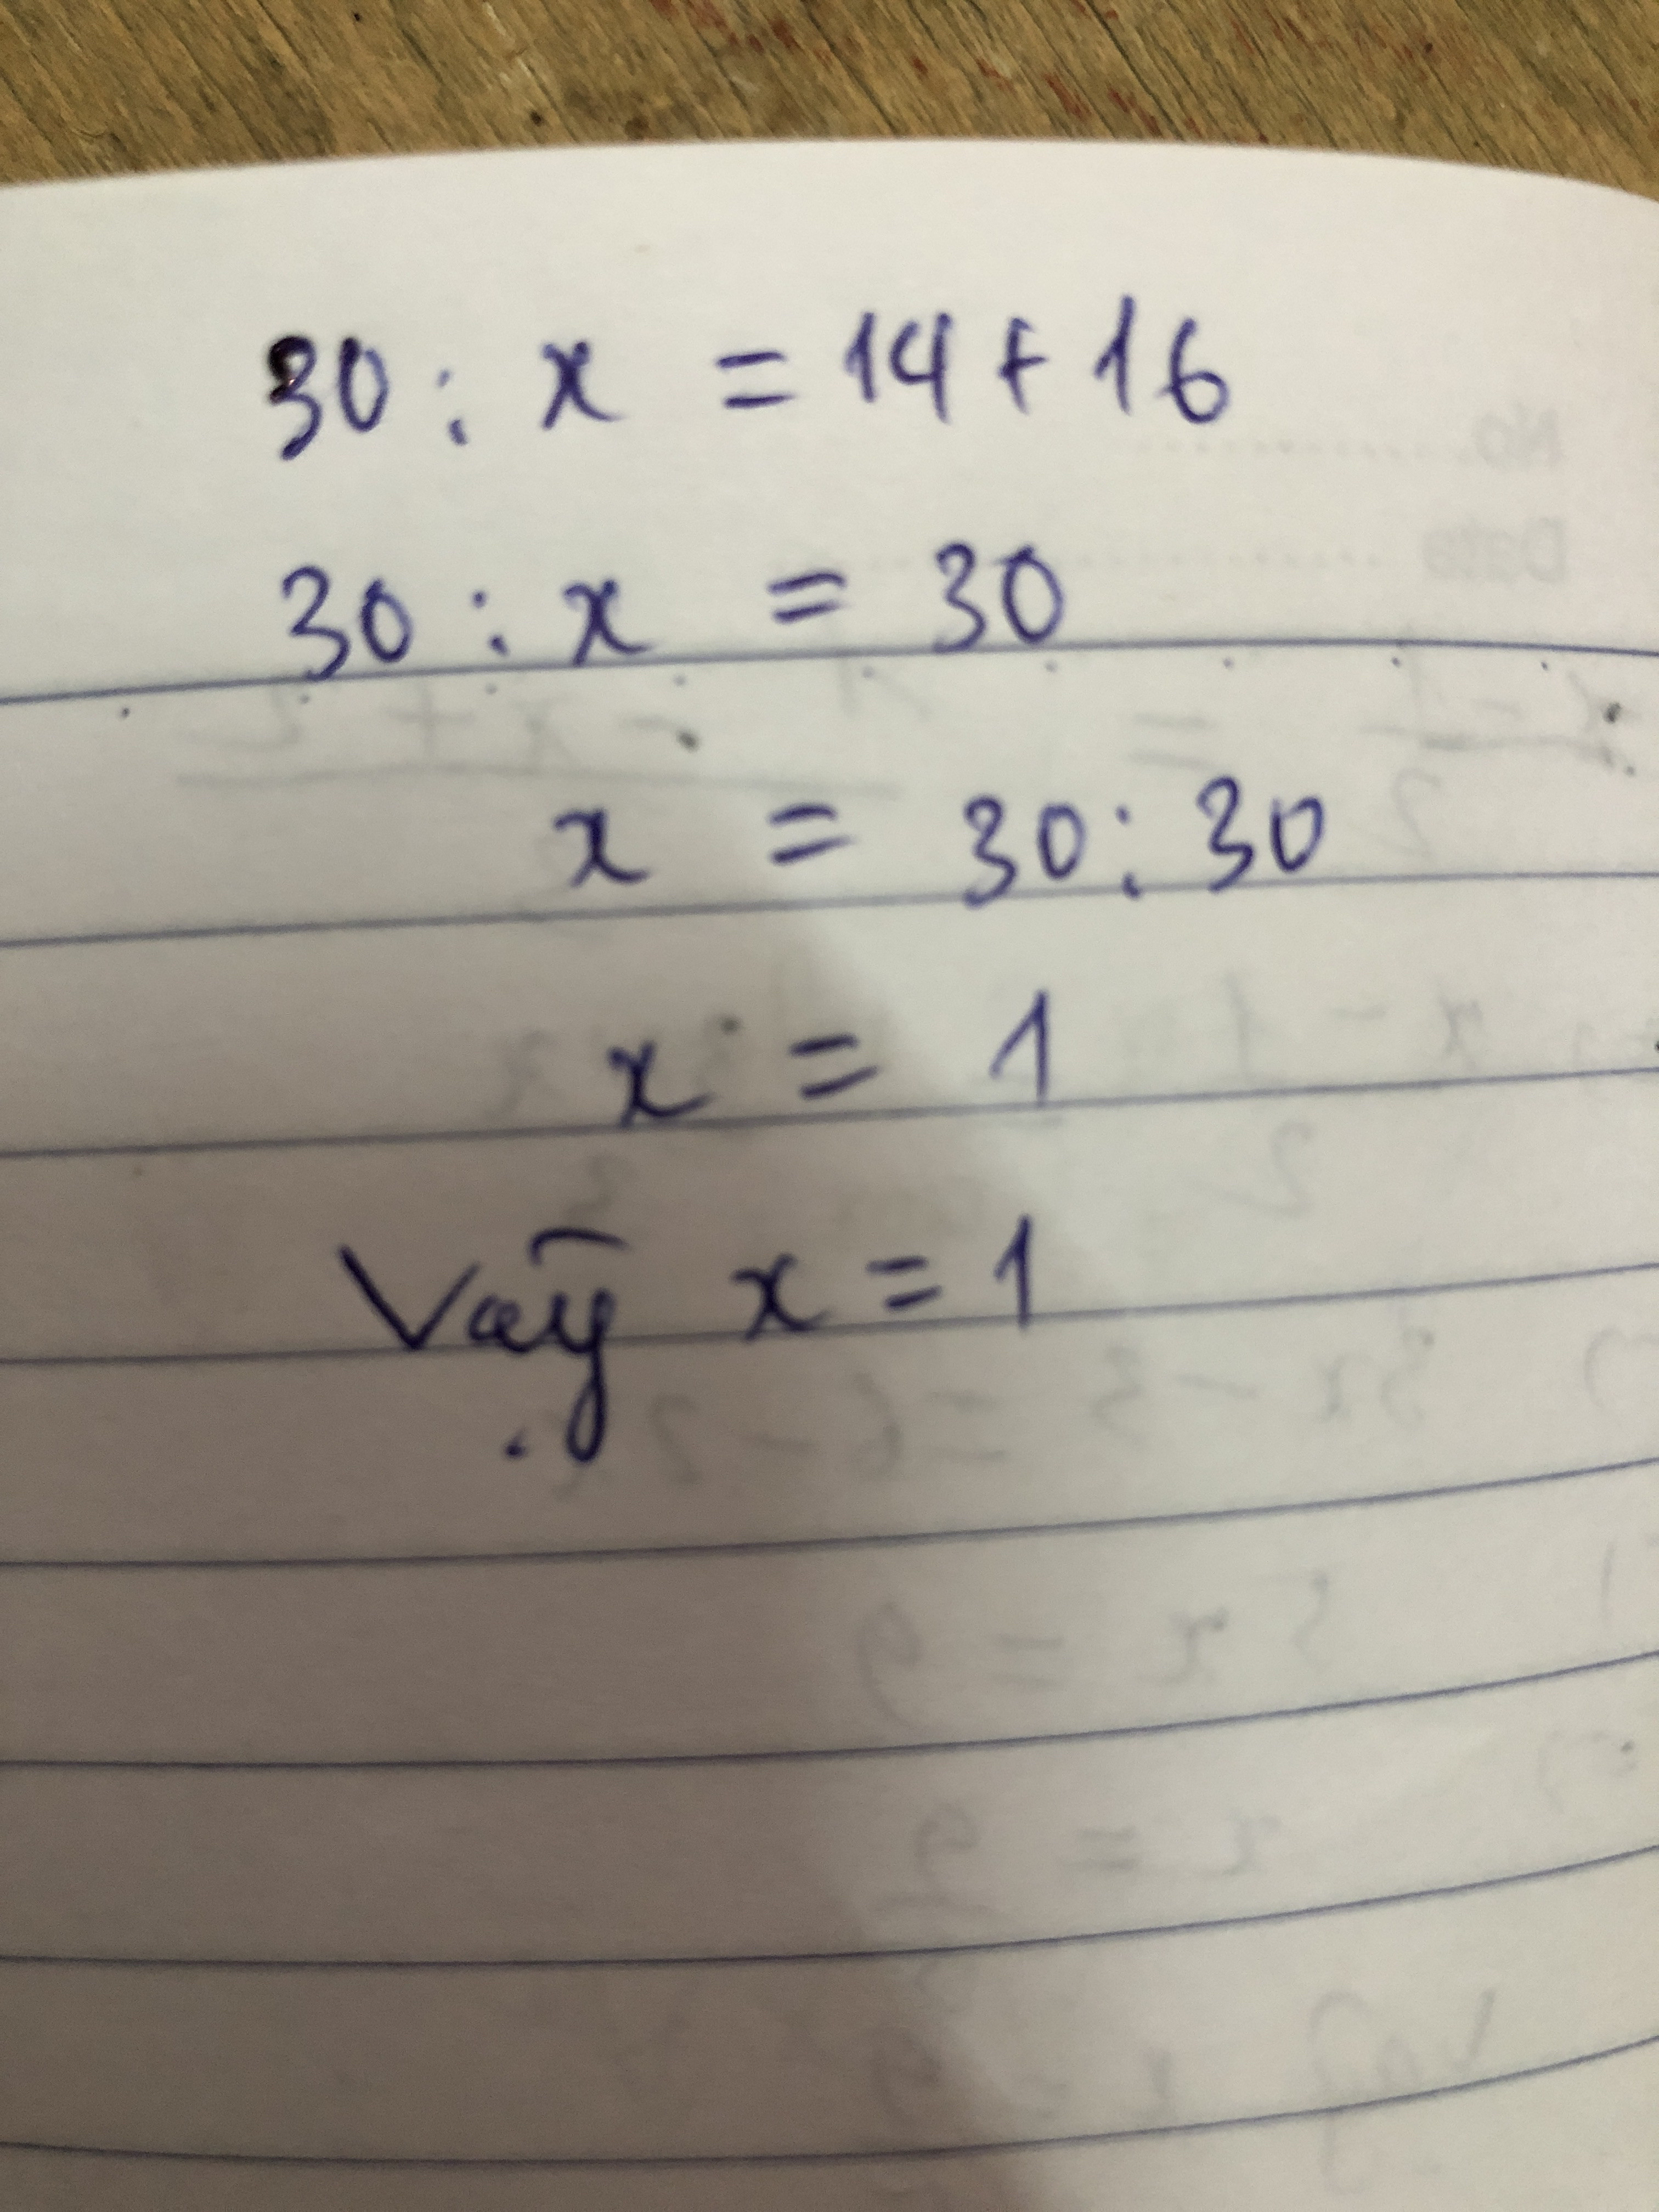 30 : x = 14 + 16
30 : x = 30
x = 30 : 30
x = 1
Vậy x = 1
No.
Date